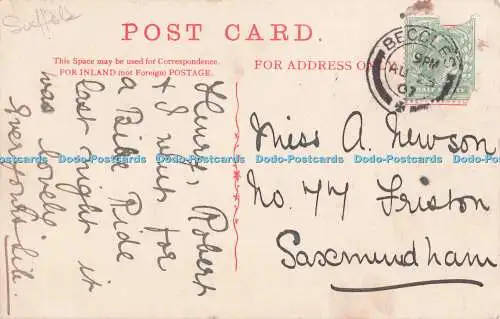 Suffolk
POST CARD.
This Space may be used for Correspondence.
FOR INLAND (not Foreign) POSTAGE.
FOR ADDRESS ON
BECCLES
9 PM
AU
07
Henry, Robert
& I went for
a Bike Ride
last night it
was lovely
Everyours Lil.
Miss A. Newson
No. 77 Friston
Saxmundham
Dodo-Postcards Dodo-Postcards Dodo-Postcards Dodo-Postcards Dodo-Postcards